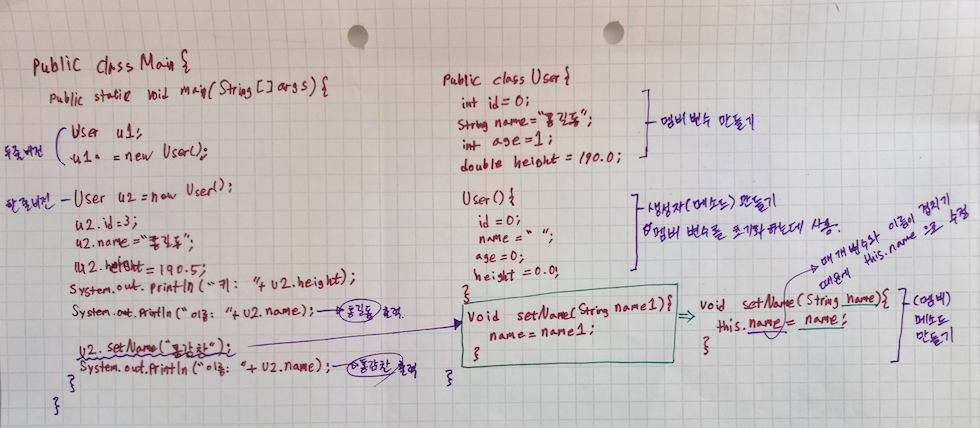 Public class Main {
Public static void main(String [] args) {
두줄버전
User u1;
u1 = new User();
한줄버전 - User u2 = new User();
u2.id=3;
u2.name="홍길동";
u2.height=190.5;
System.out.println("키: "+u2.height);
System.out.println("이름: "+u2.name); → 홍길동 출력
u2.setName("홍감찬");
System.out.println("이름: "+u2.name); → 홍감찬 출력
}
}
Public class User {
int id=0;
String name="홍길동";
int age=1;
double height = 190.0;
멤버 변수 만들기
User() {
id=0;
name=" ";
age=0;
height=0.0;
}
생성자(메소드) 만들기
멤버 변수를 초기화하는데 사용.
void setName(String name1){
name=name1;
}
}
⇒ void setName(String name){
this.name = name;
}
매개변수와 이름이 겹치기
때문에 this.name 으로 수정
(멤버)
메소드
만들기